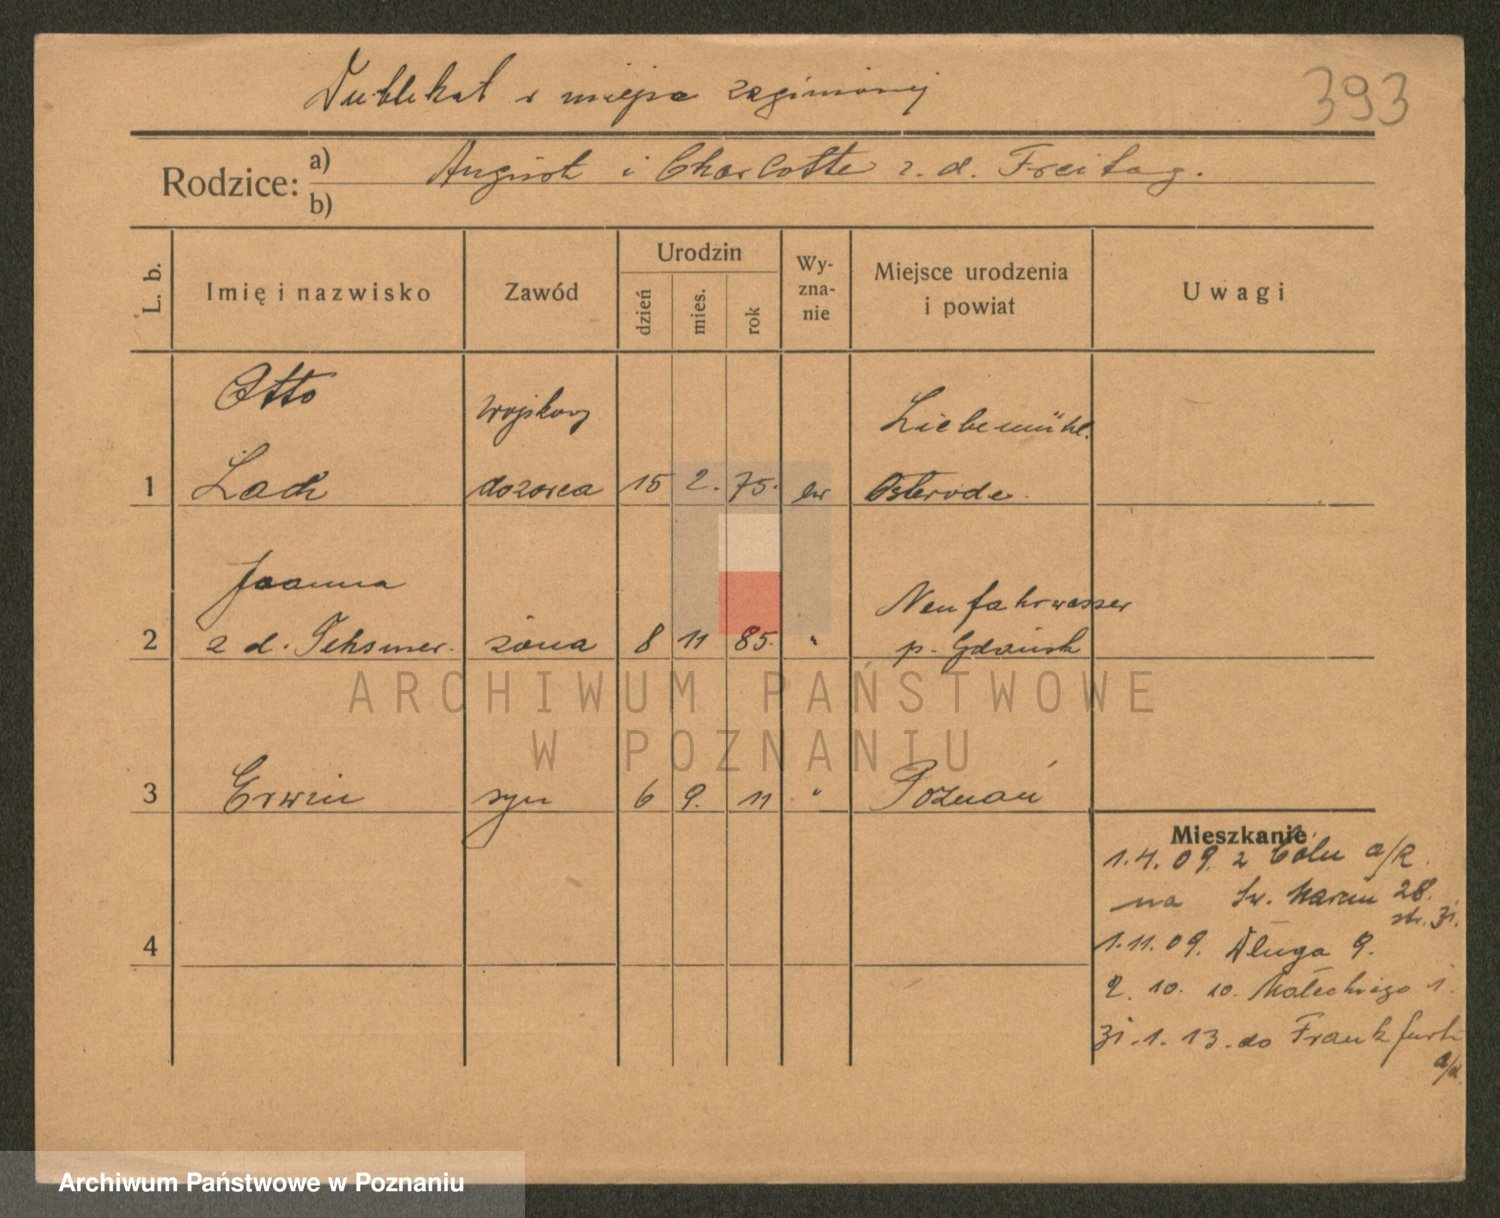 Dublikat w miejsce zaginionej
393
Rodzice: a) August i Charlotte z. d. Freitag.
b)
L. b. Imię i nazwisko Zawód Urodzin dzień mies. rok Wy-zna-nie Miejsce urodzenia i powiat Uwagi
Otto wojskowy Liebemühl.
1 Lach dozorca 15 2. 75. ew Osterode.
Joanna Neufahrwasser
2 z d. żona 8 11 85. " p. Gdańsk
3 Erwin syn 6 9. 11 " Poznań
Mieszkanie
1.4.09. z Cöln a/R.
na Św. Marcin 28.
str. 31.
4
1.11.09. Długa 9.
2. 10. 10. Małeckiego 1.
31.1.13. do Frankfurt
a/
ARCHIWUM PAŃSTWOWE
W POZNANIU
Archiwum Państwowe w Poznaniu